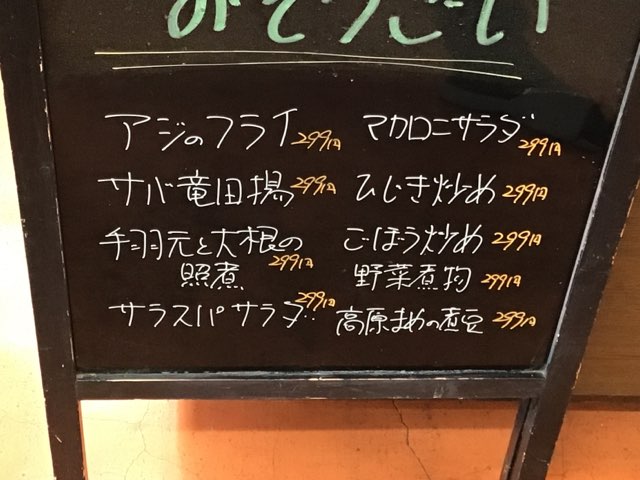 おそうざい
アジのフライ 299円
サバ竜田揚 299円
手羽元と大根の
照煮 299円
サラスパサラダ 299円
マカロニサラダ 299円
ひじき炒め 299円
ごぼう炒め 299円
野菜煮物 299円
高原まめの煮豆 299円